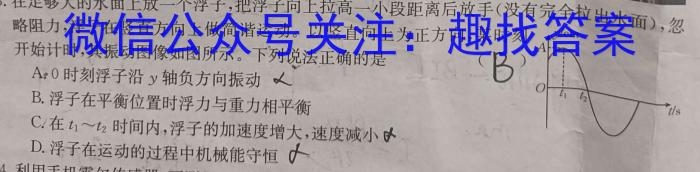 在足够大的水面上放一个浮子,把浮子向上拉高一小段距离后放手(没有完全拉出水面),忽
略阻力,
微信公众号关注：趣找答案
开始计时,其振动图像如图所示。下列说法正确的是
( B )
A. 0 时刻浮子沿 y 轴负方向振动
B. 浮子在平衡位置时浮力与重力相平衡
C. 在 t₁～t₂ 时间内,浮子的加速度增大,速度减小
D. 浮子在运动的过程中机械能守恒
A
O
t₁
t₂
t/s